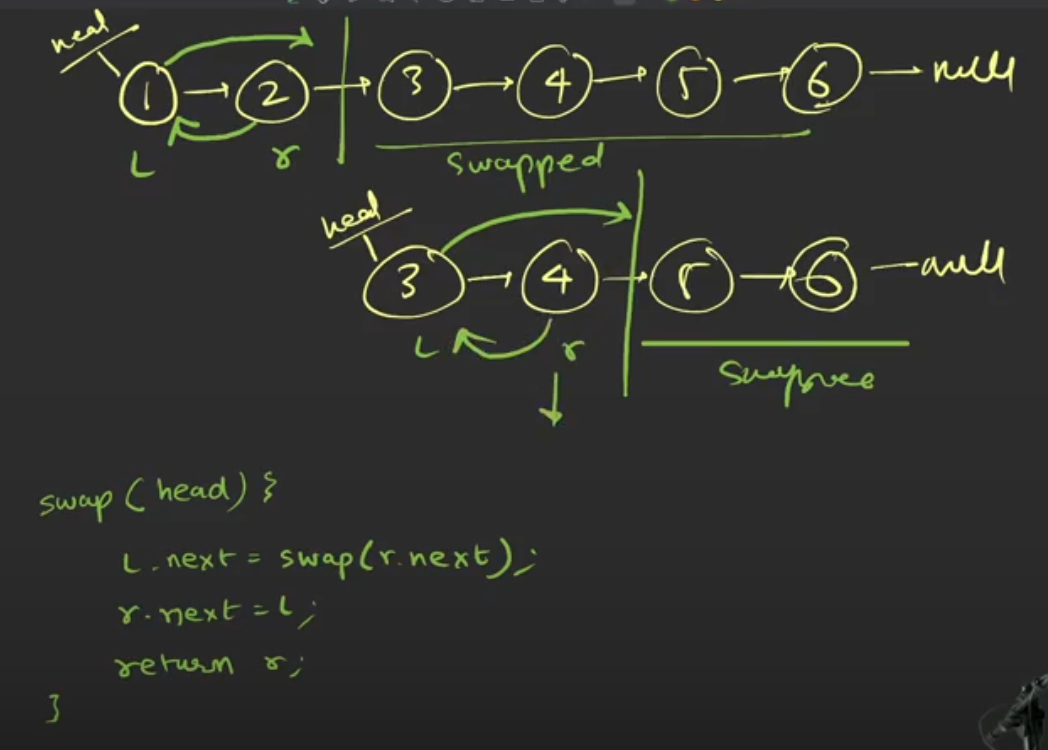 head
1 → 2 → 3 → 4 → 5 → 6 → null
L r
swapped
head
3 → 4 → 5 → 6 — null
L r
swap(head) {
L.next = swap(r.next);
r.next = L;
return r;
}